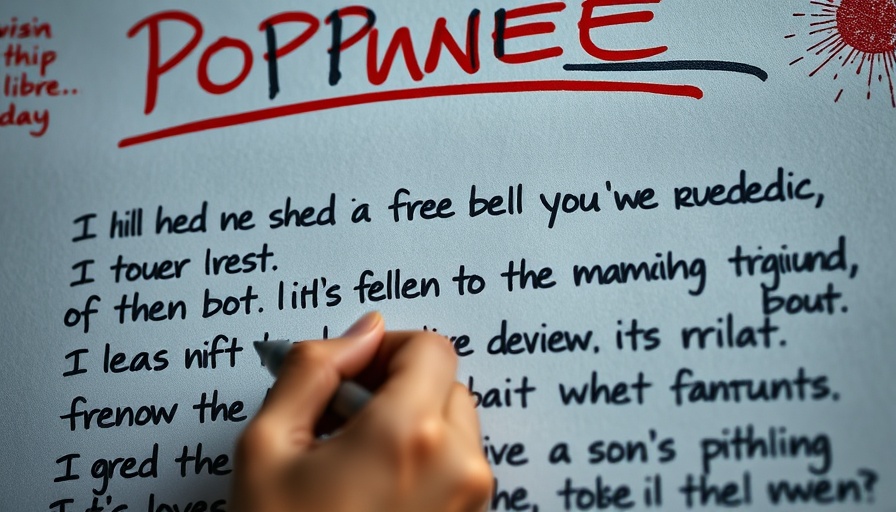 visin
thip
libre..
day
POPPUNEE
I hill hed ne shed a free bell you'we Ruededic,
I touer lrest.
of then bot. I iH's fellen to the mamihg trigiund,
bout.
I leas nift deview. its rrilat.
frenow the bait whet fanrunts.
I gred the ive a son's pithling
I t's loves he, tobe il thel vwen?